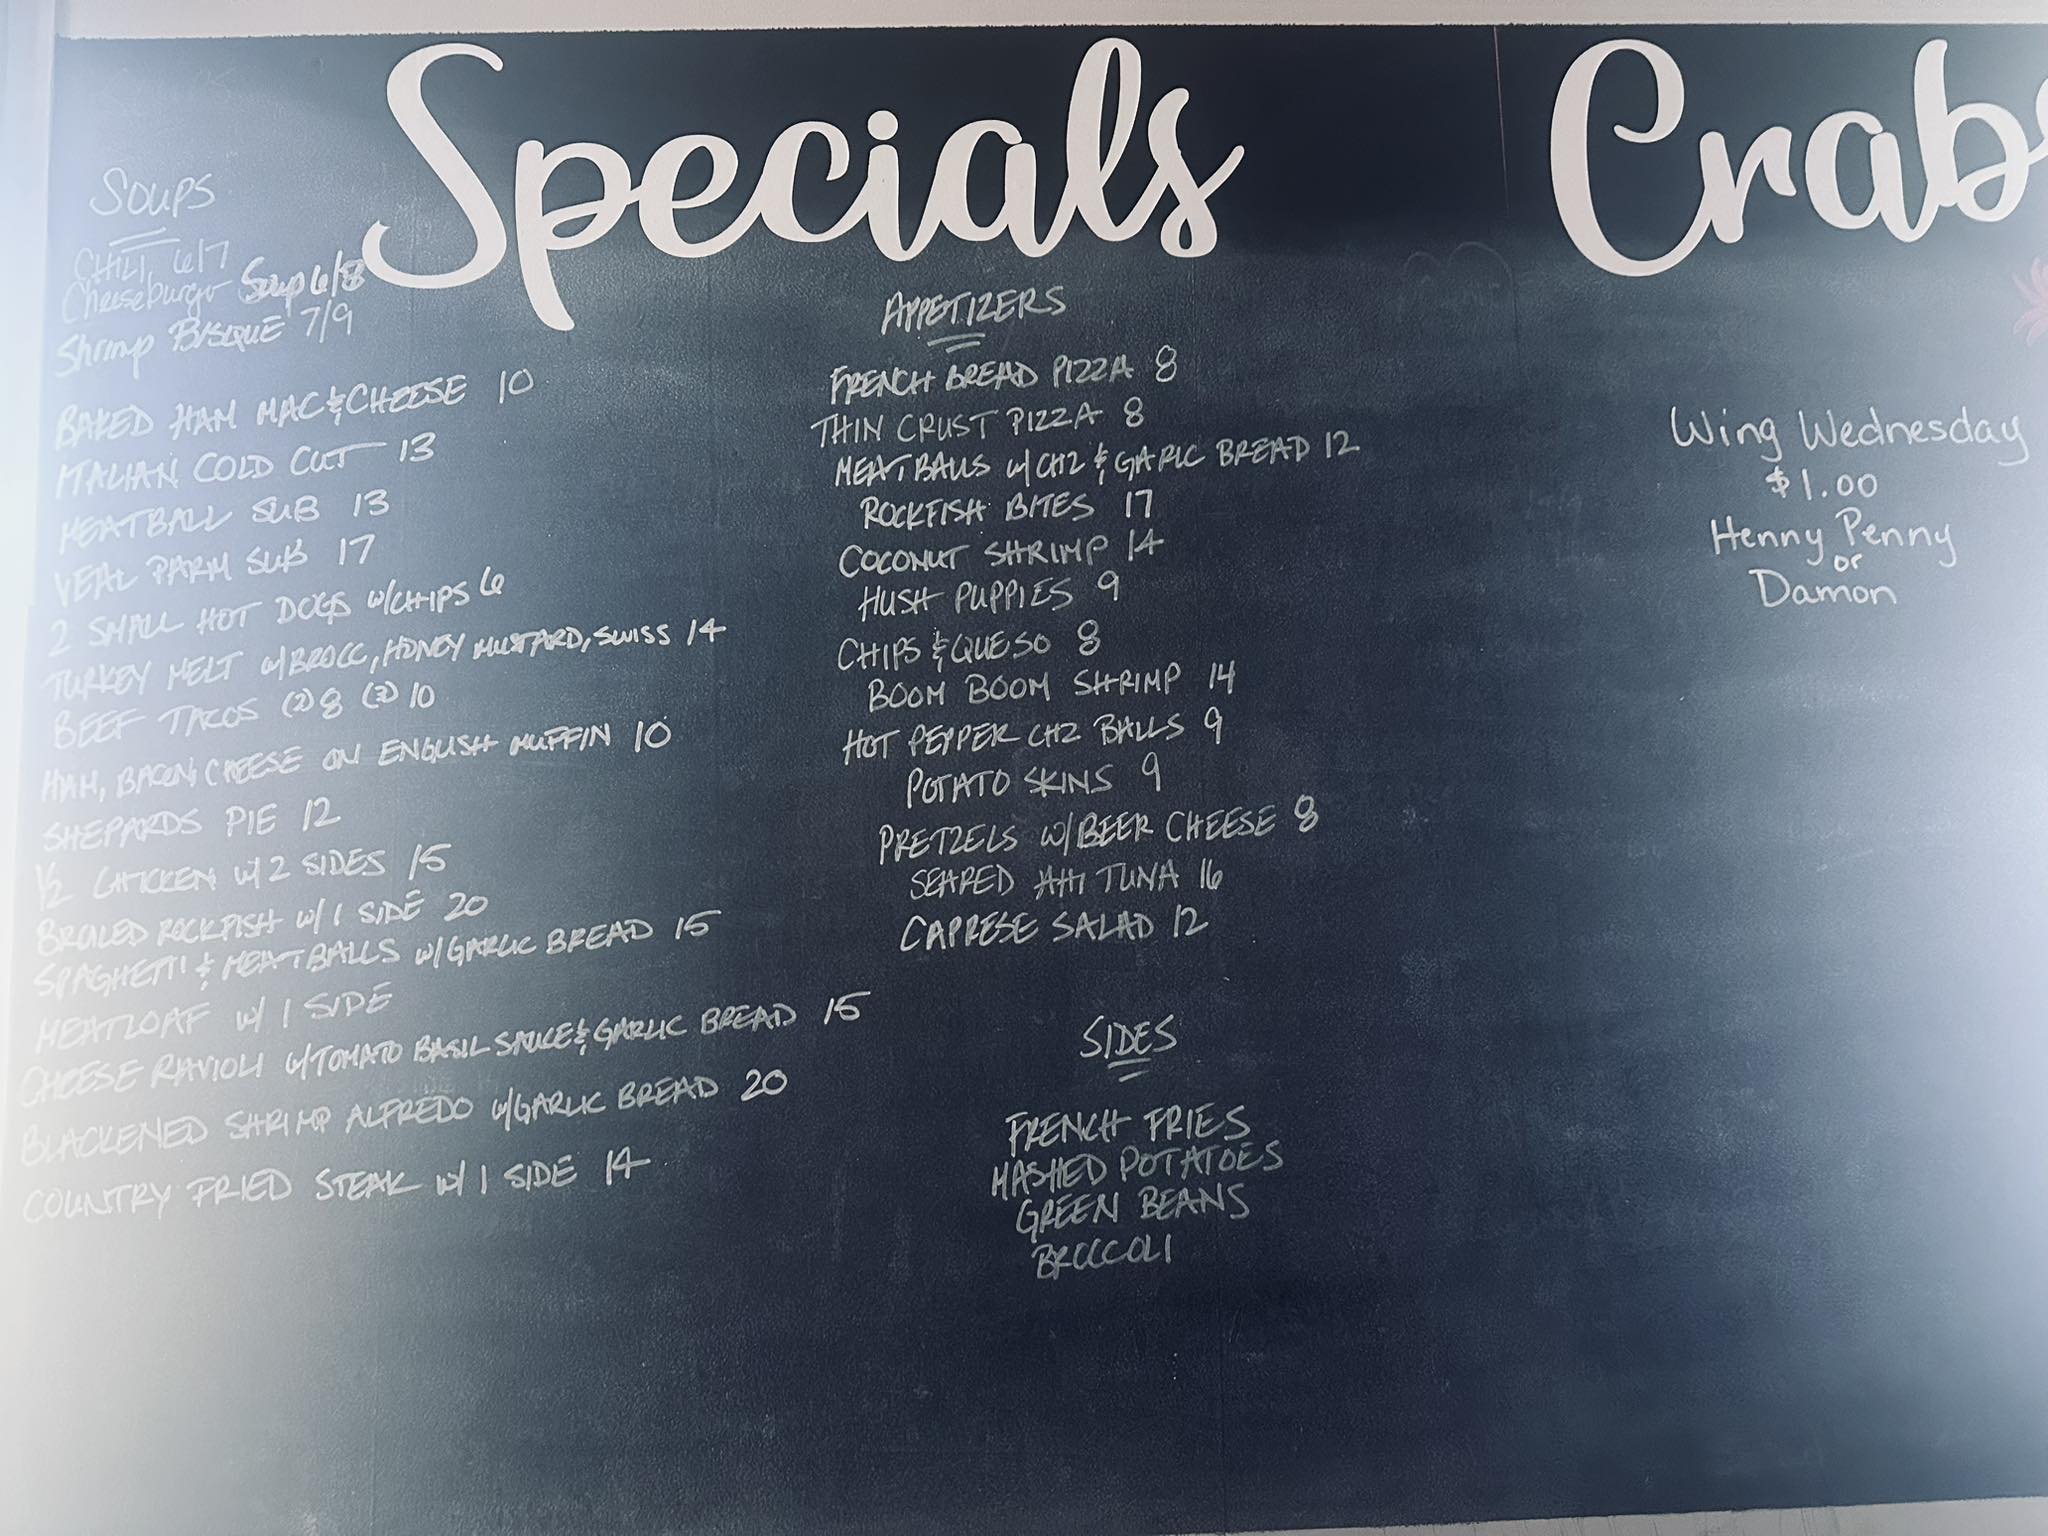 Specials
Crabs
SOUPS
CHILI 6/7
Cheeseburger Soup 6/8
Shrimp BISQUE 7/9
BAKED HAM MAC & CHEESE 10
ITALIAN COLD CUT 13
MEATBALL SUB 13
VEAL PARM SUB 17
2 SMALL HOT DOGS w/CHIPS 6
TURKEY MELT w/BROCC, HONEY MUSTARD, SWISS 14
BEEF TACOS (2) 8 (3) 10
HAM, BACON, CHEESE ON ENGLISH MUFFIN 10
SHEPARDS PIE 12
1/2 CHICKEN w/ 2 SIDES 15
BROILED ROCKFISH w/ 1 SIDE 20
SPAGHETTI & MEATBALLS w/GARLIC BREAD 15
MEATLOAF w/ 1 SIDE
CHEESE RAVIOLI w/TOMATO BASIL SAUCE & GARLIC BREAD 15
BLACKENED SHRIMP ALFREDO w/GARLIC BREAD 20
COUNTRY FRIED STEAK w/ 1 SIDE 14
APPETIZERS
FRENCH BREAD PIZZA 8
THIN CRUST PIZZA 8
MEATBALLS w/CHZ & GARLIC BREAD 12
ROCKFISH BITES 17
COCONUT SHRIMP 14
HUSH PUPPIES 9
CHIPS & QUESO 8
BOOM BOOM SHRIMP 14
HOT PEPPER CHZ BALLS 9
POTATO SKINS 9
PRETZELS w/BEER CHEESE 8
SEARED AHI TUNA 16
CAPRESE SALAD 12
SIDES
FRENCH FRIES
MASHED POTATOES
GREEN BEANS
BROCCOLI
Wing Wednesday
$1.00
Henny Penny
or
Damon